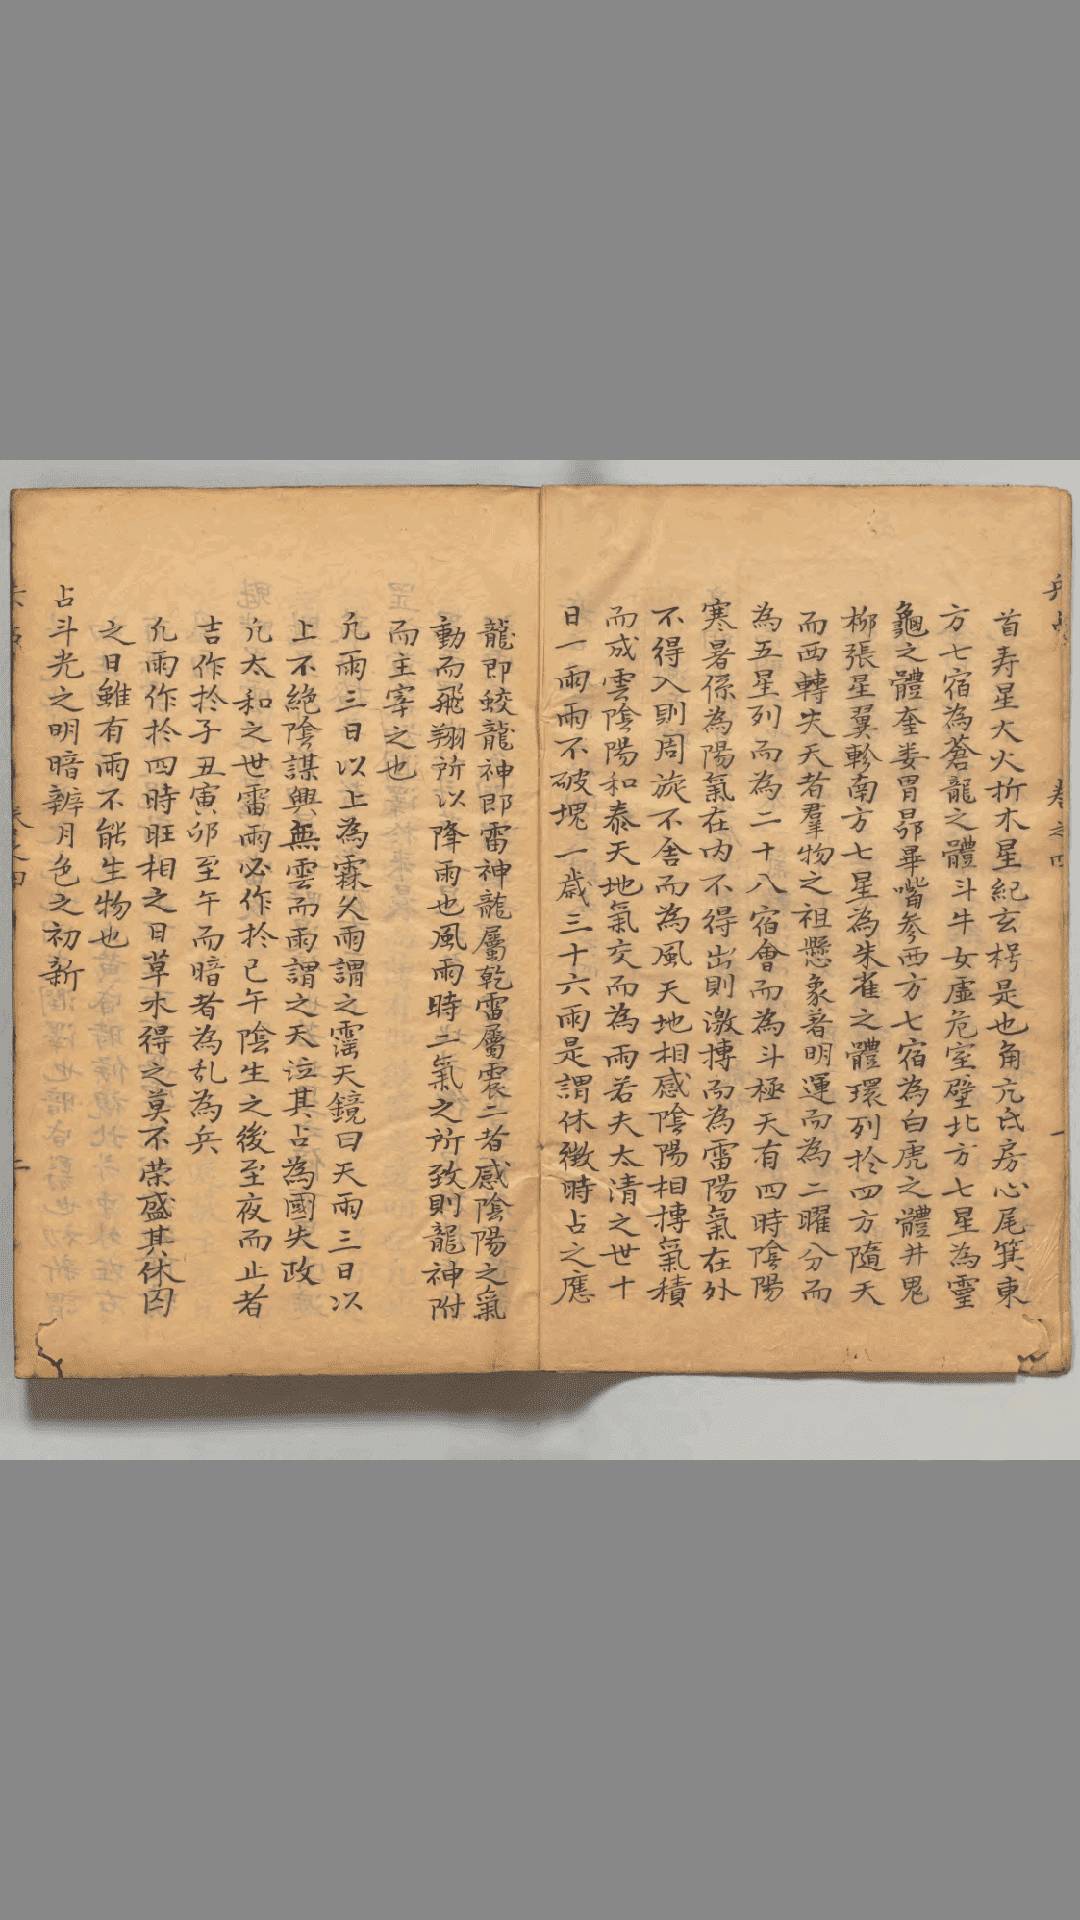 卷之四
首寿星大火析木星紀玄枵是也角亢氐房心尾箕東
方七宿為蒼龍之體斗牛女虛危室壁北方七星為靈
龜之體奎婁胃昴畢嘴参西方七宿為白虎之體井鬼
柳張星翼軫南方七星為朱雀之體環列扵四方隨天
而西轉夫天者羣物之祖懸象著明運而為二曜分而
為五星列而為二十八宿會而為斗極天有四時陰陽
寒暑係為陽氣在内不得出則激摶而為雷陽氣在外
不得入則周旋不舍而為風天地相感陰陽相摶氣積
而成雲陰陽和泰天地氣交而為雨若夫太清之世十
日一雨雨不破塊一歳三十六雨是謂休徴時占之應
龍即蛟龍神即雷神龍屬乾雷屬震二者感陰陽之氣
動而飛翔所以降雨也風雨時二氣之所致則龍神附
而主宰之也
凢雨三日以上為霖久雨謂之霪天鏡曰天雨三日以
上不絕陰謀興無雲而雨謂之天泣其占為國失政
凢太和之世雷雨必作扵巳午陰生之後至夜而止者
吉作扵子丑寅卯至午而暗者為乱為兵
凢雨作扵四時旺相之日草木得之莫不荣盛其休囚
之日雖有雨不能生物也
占斗光之明暗辨月色之初新